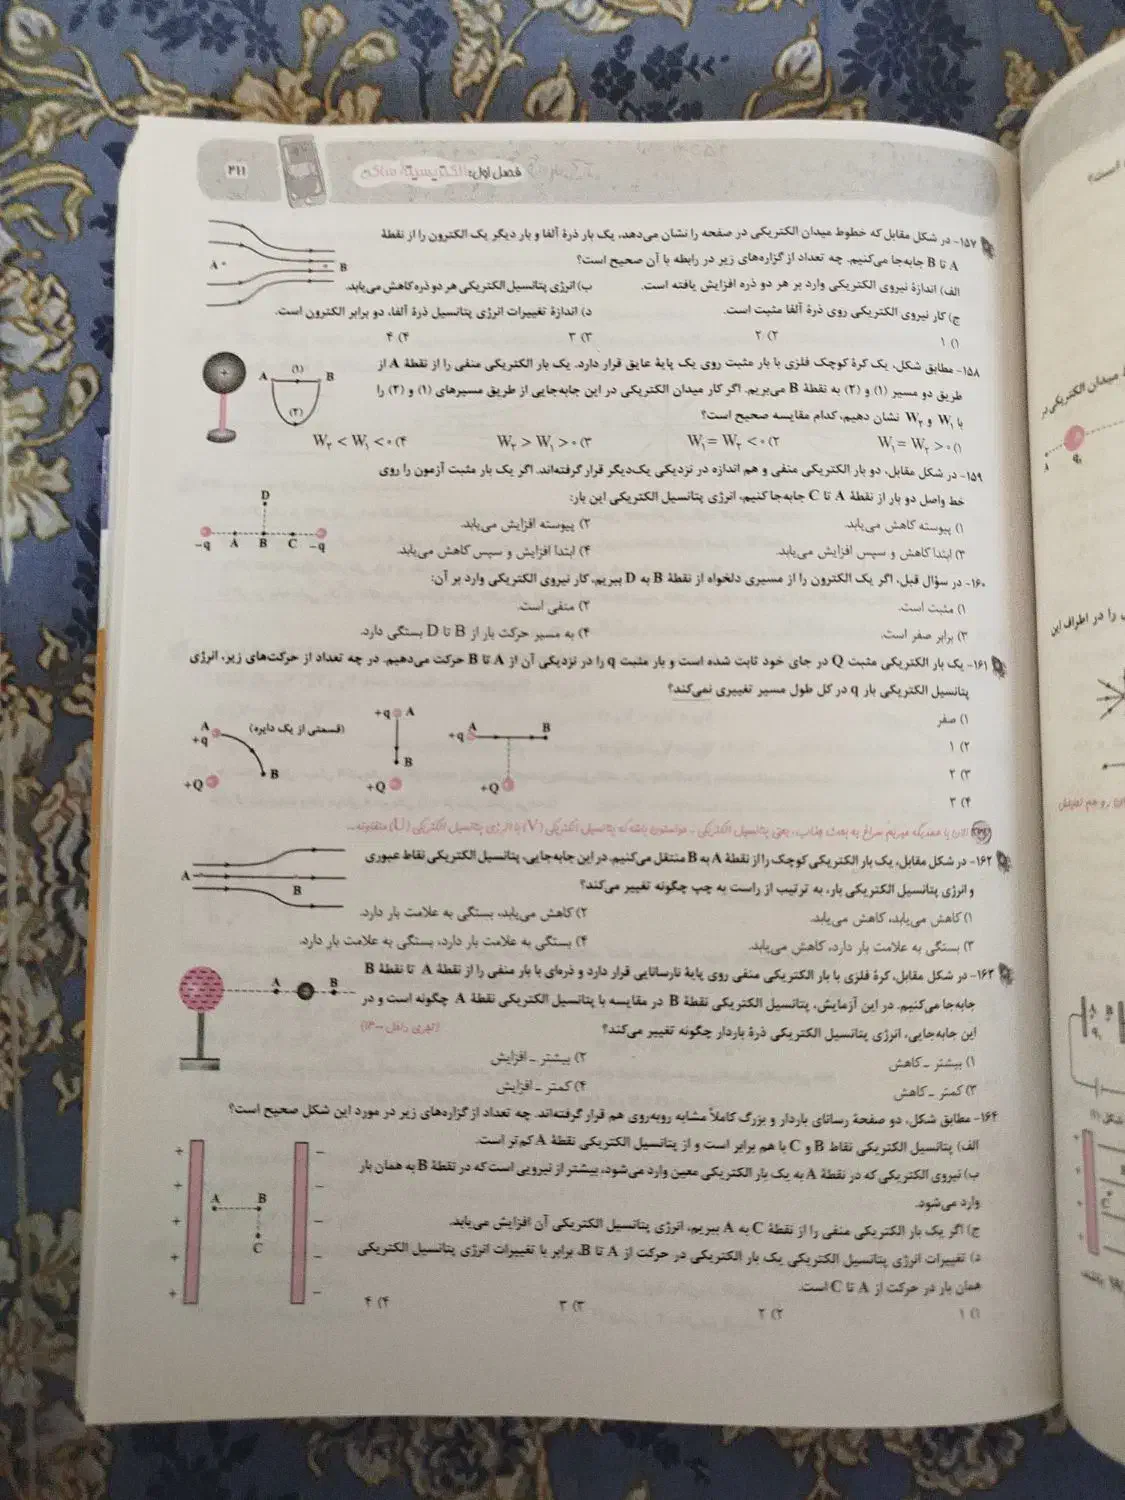 فصل اول: الکتریسیتهٔ ساکن
۲۱۱
۱۵۷- در شکل مقابل که خطوط میدان الکتریکی در صفحه را نشان می‌دهد، یک بار ذرهٔ آلفا و بار دیگر یک الکترون را از نقطهٔ
A تا B جابه‌جا می‌کنیم. چه تعداد از گزاره‌های زیر در رابطه با آن صحیح است؟
الف) اندازهٔ نیروی الکتریکی وارد بر هر دو ذره افزایش یافته است. ب) انرژی پتانسیل الکتریکی هر دو ذره کاهش می‌یابد.
ج) کار نیروی الکتریکی روی ذرهٔ آلفا مثبت است. د) اندازهٔ تغییرات انرژی پتانسیل ذرهٔ آلفا، دو برابر الکترون است.
۱) ۱ ۲) ۲ ۳) ۳ ۴) ۴
A B
۱۵۸- مطابق شکل، یک کرهٔ کوچک فلزی با بار مثبت روی یک پایهٔ عایق قرار دارد. یک بار الکتریکی منفی را از نقطهٔ A از
طریق دو مسیر (۱) و (۲) به نقطهٔ B می‌بریم. اگر کار میدان الکتریکی در این جابه‌جایی از طریق مسیرهای (۱) و (۲) را
با W₁ و W₂ نشان دهیم، کدام مقایسه صحیح است؟
۱) W₁ = W₂ > ۰ ۲) W₁ = W₂ < ۰ ۳) W₂ > W₁ > ۰ ۴) W₂ < W₁ < ۰
+ A (۱) B
(۲)
۱۵۹- در شکل مقابل، دو بار الکتریکی منفی و هم اندازه در نزدیکی یک‌دیگر قرار گرفته‌اند. اگر یک بار مثبت آزمون را روی
خط واصل دو بار از نقطهٔ A تا C جابه‌جا کنیم، انرژی پتانسیل الکتریکی این بار:
۱) پیوسته کاهش می‌یابد. ۲) پیوسته افزایش می‌یابد.
۳) ابتدا کاهش و سپس افزایش می‌یابد. ۴) ابتدا افزایش و سپس کاهش می‌یابد.
D
-q A B C -q
۱۶۰- در سؤال قبل، اگر یک الکترون را از مسیری دلخواه از نقطهٔ B به D ببریم، کار نیروی الکتریکی وارد بر آن:
۱) مثبت است. ۲) منفی است.
۳) برابر صفر است. ۴) به مسیر حرکت بار از B تا D بستگی دارد.
۱۶۱- یک بار الکتریکی مثبت Q در جای خود ثابت شده است و بار مثبت q را در نزدیکی آن از A تا B حرکت می‌دهیم. در چه تعداد از حرکت‌های زیر، انرژی
پتانسیل الکتریکی بار q در کل طول مسیر تغییری نمی‌کند؟
۱) صفر
۲) ۱
۳) ۲
۴) ۳
A +q B +Q (قسمتی از یک دایره)
+q A B +Q
A +q B +Q
الان با همدیگه میریم سراغ یه بحث جذاب، یعنی پتانسیل الکتریکی - حواستون باشه که پتانسیل الکتریکی (V) با انرژی پتانسیل الکتریکی (U) متفاوته...
۱۶۲- در شکل مقابل، یک بار الکتریکی کوچک را از نقطهٔ A به B منتقل می‌کنیم. در این جابه‌جایی، پتانسیل الکتریکی نقاط عبوری
و انرژی پتانسیل الکتریکی بار، به ترتیب از راست به چپ چگونه تغییر می‌کند؟
۱) کاهش می‌یابد، کاهش می‌یابد. ۲) کاهش می‌یابد، بستگی به علامت بار دارد.
۳) بستگی به علامت بار دارد، کاهش می‌یابد. ۴) بستگی به علامت بار دارد، بستگی به علامت بار دارد.
A B
۱۶۳- در شکل مقابل، کرهٔ فلزی با بار الکتریکی منفی روی پایهٔ نارسانایی قرار دارد و ذره‌ای با بار منفی را از نقطهٔ A تا نقطهٔ B
جابه‌جا می‌کنیم. در این آزمایش، پتانسیل الکتریکی نقطهٔ B در مقایسه با پتانسیل الکتریکی نقطهٔ A چگونه است و در
این جابه‌جایی، انرژی پتانسیل الکتریکی ذرهٔ باردار چگونه تغییر می‌کند؟
۱) بیشتر ـ کاهش ۲) بیشتر ـ افزایش
۳) کمتر ـ کاهش ۴) کمتر ـ افزایش
A B
۱۶۴- مطابق شکل، دو صفحهٔ رسانای باردار و بزرگ کاملاً مشابه روبه‌روی هم قرار گرفته‌اند. چه تعداد از گزاره‌های زیر در مورد این شکل صحیح است؟
الف) پتانسیل الکتریکی نقاط B و C با هم برابر است و از پتانسیل الکتریکی نقطهٔ A کم‌تر است.
ب) نیروی الکتریکی که در نقطهٔ A به یک بار الکتریکی معین وارد می‌شود، بیشتر از نیرویی است که در نقطهٔ B به همان بار
وارد می‌شود.
ج) اگر یک بار الکتریکی منفی را از نقطهٔ C به A ببریم، انرژی پتانسیل الکتریکی آن افزایش می‌یابد.
د) تغییرات انرژی پتانسیل الکتریکی یک بار الکتریکی در حرکت از A تا B، برابر با تغییرات انرژی پتانسیل الکتریکی
همان بار در حرکت از A تا C است.
۱) ۱ ۲) ۲ ۳) ۳ ۴) ۴
A B
C